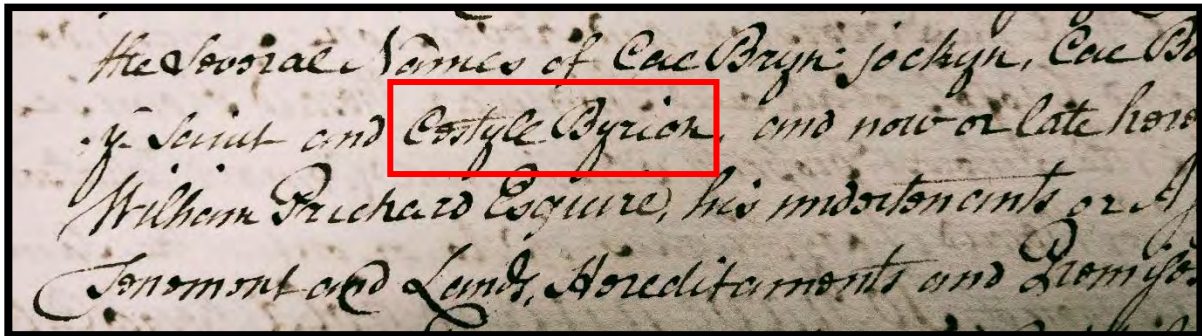 the Several Names of Cae Bryn jockyn, Cae B
y Saint and Costyle Byrion, and now or late here
William Prichard Esquire, his undertenants or A
Tenement and Lands, Hereditaments and Premise